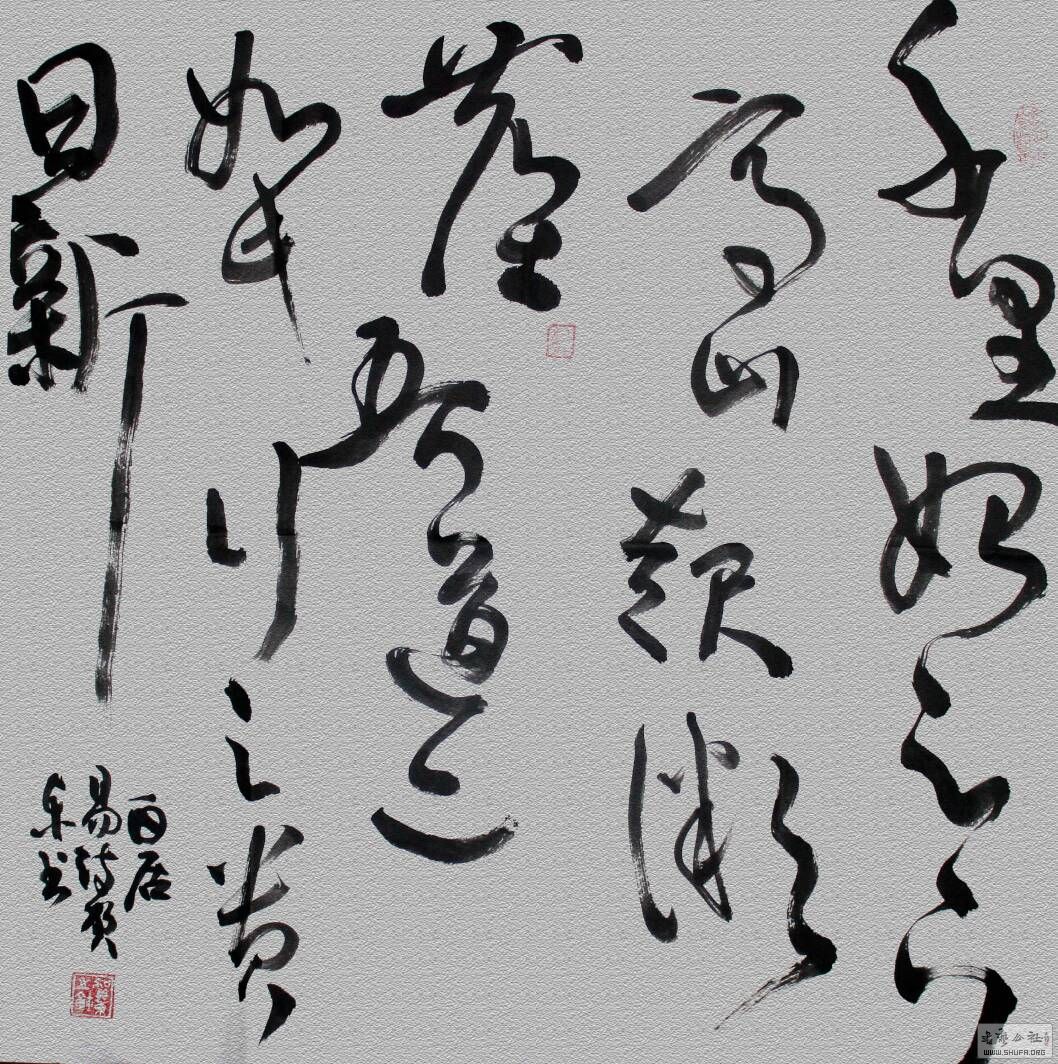 千里始足下
高山起微
塵吾道亦
如此行之貴
日新
白居
易诗
书
WWW.SHUFA.ORG